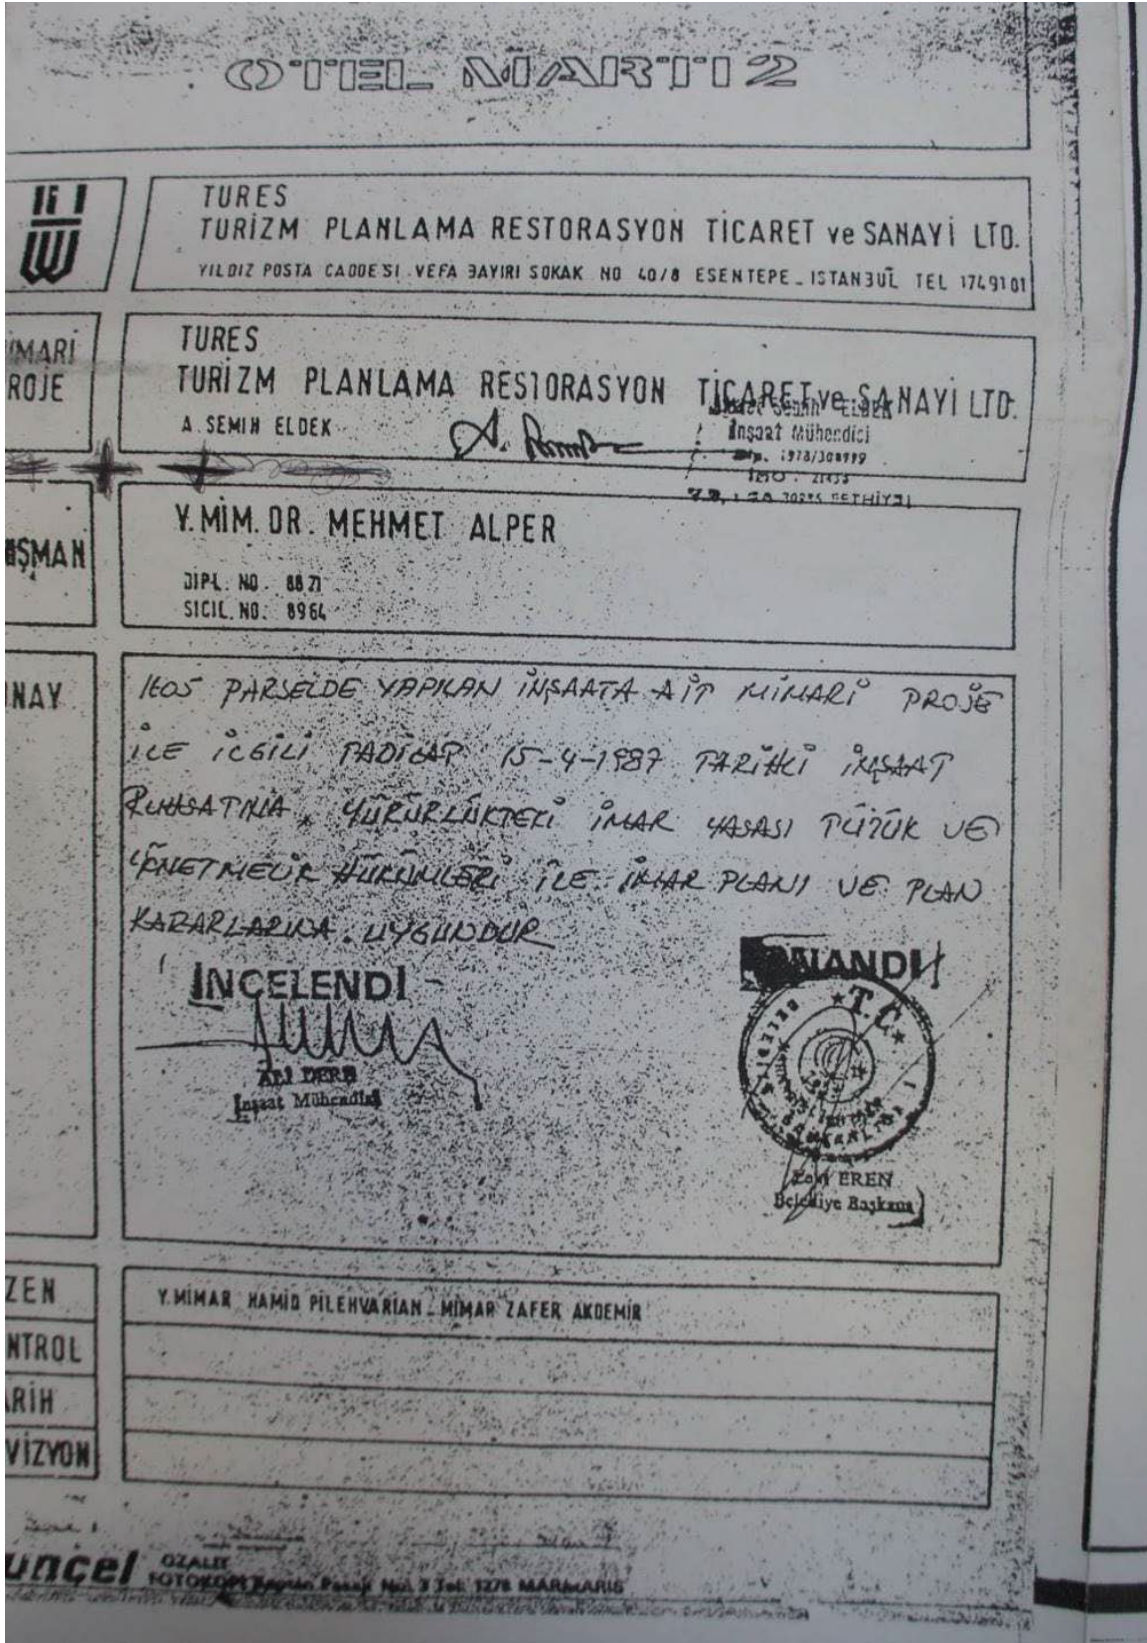 OTEL MARTI 2
TURES
TURİZM PLANLAMA RESTORASYON TİCARET ve SANAYİ LTD.
YILDIZ POSTA CADDESİ VEFA BAYIRI SOKAK NO 40/8 ESENTEPE - ISTANBUL TEL 1749101
İMARİ
ROJE
TURES
TURİZM PLANLAMA RESTORASYON TİCARET ve SANAYİ LTD.
A. SEMİH ELDEK
Semih ELDEK
İnşaat Mühendisi
Dip. 1978/308999
İMO.
ŞMAN
Y. MİM. DR. MEHMET ALPER
DİPL. NO. 8871
SİCİL. NO. 8964
NAY
1605 PARSELDE YAPILAN İNŞAATA AİT MİMARİ PROJE
İLE İLGİLİ TADİLAT 15-4-1987 TARİHLİ İNŞAAT
RUHSATINA, YÜRÜRLÜKTEKİ İMAR YASASI TÜZÜK VE
YÖNETMELİK HÜKÜMLERİ İLE İMAR PLANI VE PLAN
KARARLARINA UYGUNDUR
İNCELENDİ
ONANDI
T.C.
BELEDİYE
ALİ DERE
İnşaat Mühendisi
EREN
Belediye Başkanı
ZEN
Y. MİMAR HAMID PILEHVARIAN - MİMAR ZAFER AKDEMİR
NTROL
ARİH
VİZYON
uncel OZALİT
FOTOKOPİ Pasajı No. 3 Tel: 1278 MARMARİS